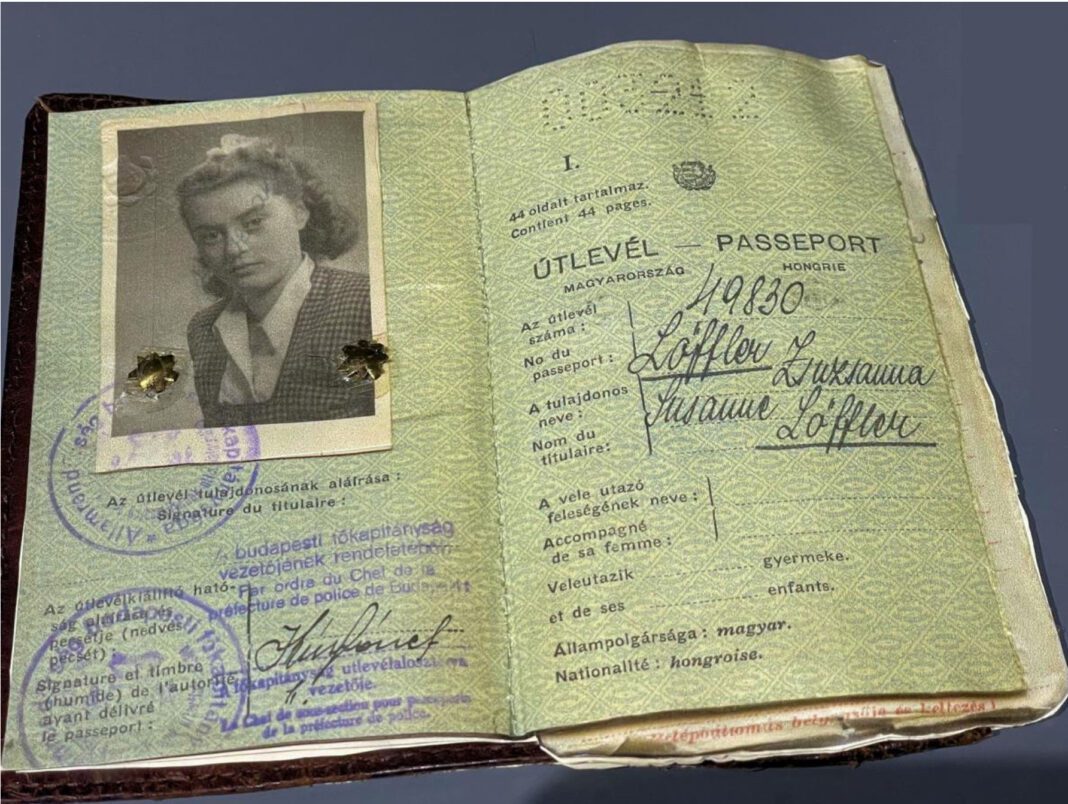 Az útlevél tulajdonosának aláírása :
Signature du titulaire :
budapesti főkapitányság
vezetőjének rendeletéből
Par ordre du Chef de la
préfecture de police de
Az útlevélkiállító ható-
ság aláírása és
pecsétje (nedves
pecsét) :
Signature et timbre
(humide) de l'autorité
ayant délivré
le passeport :
vezetője.
Le Chef de sous-section pour passeports
de la préfecture de police.
I.
44 oldalt tartalmaz.
Contient 44 pages.
ÚTLEVÉL — PASSEPORT
MAGYARORSZÁG HONGRIE
Az útlevél
száma :
49830
No du
passeport :
Löffler Zsuzsanna
A tulajdonos
neve :
Susanne Löffler
Nom du
titulaire :
A vele utazó
feleségének neve :
Accompagné
de sa femme :
Veleutazik gyermeke.
et de ses enfants.
Állampolgársága : magyar.
Nationalité : hongroise.